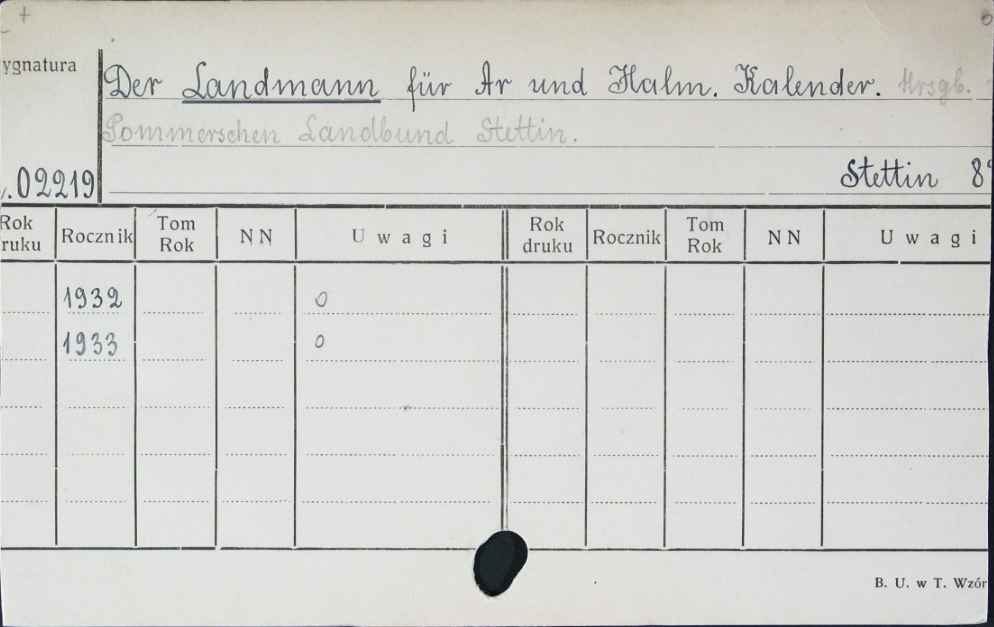 +
ygnatura
Der Landmann für Ar und Halm. Kalender. Hrsgb.
Pommerschen Landbund Stettin.
.02219
Stettin 8°
Rok druku Rocznik Tom Rok NN Uwagi Rok druku Rocznik Tom Rok NN Uwagi
1932 o
1933 o
B. U. w T. Wzór